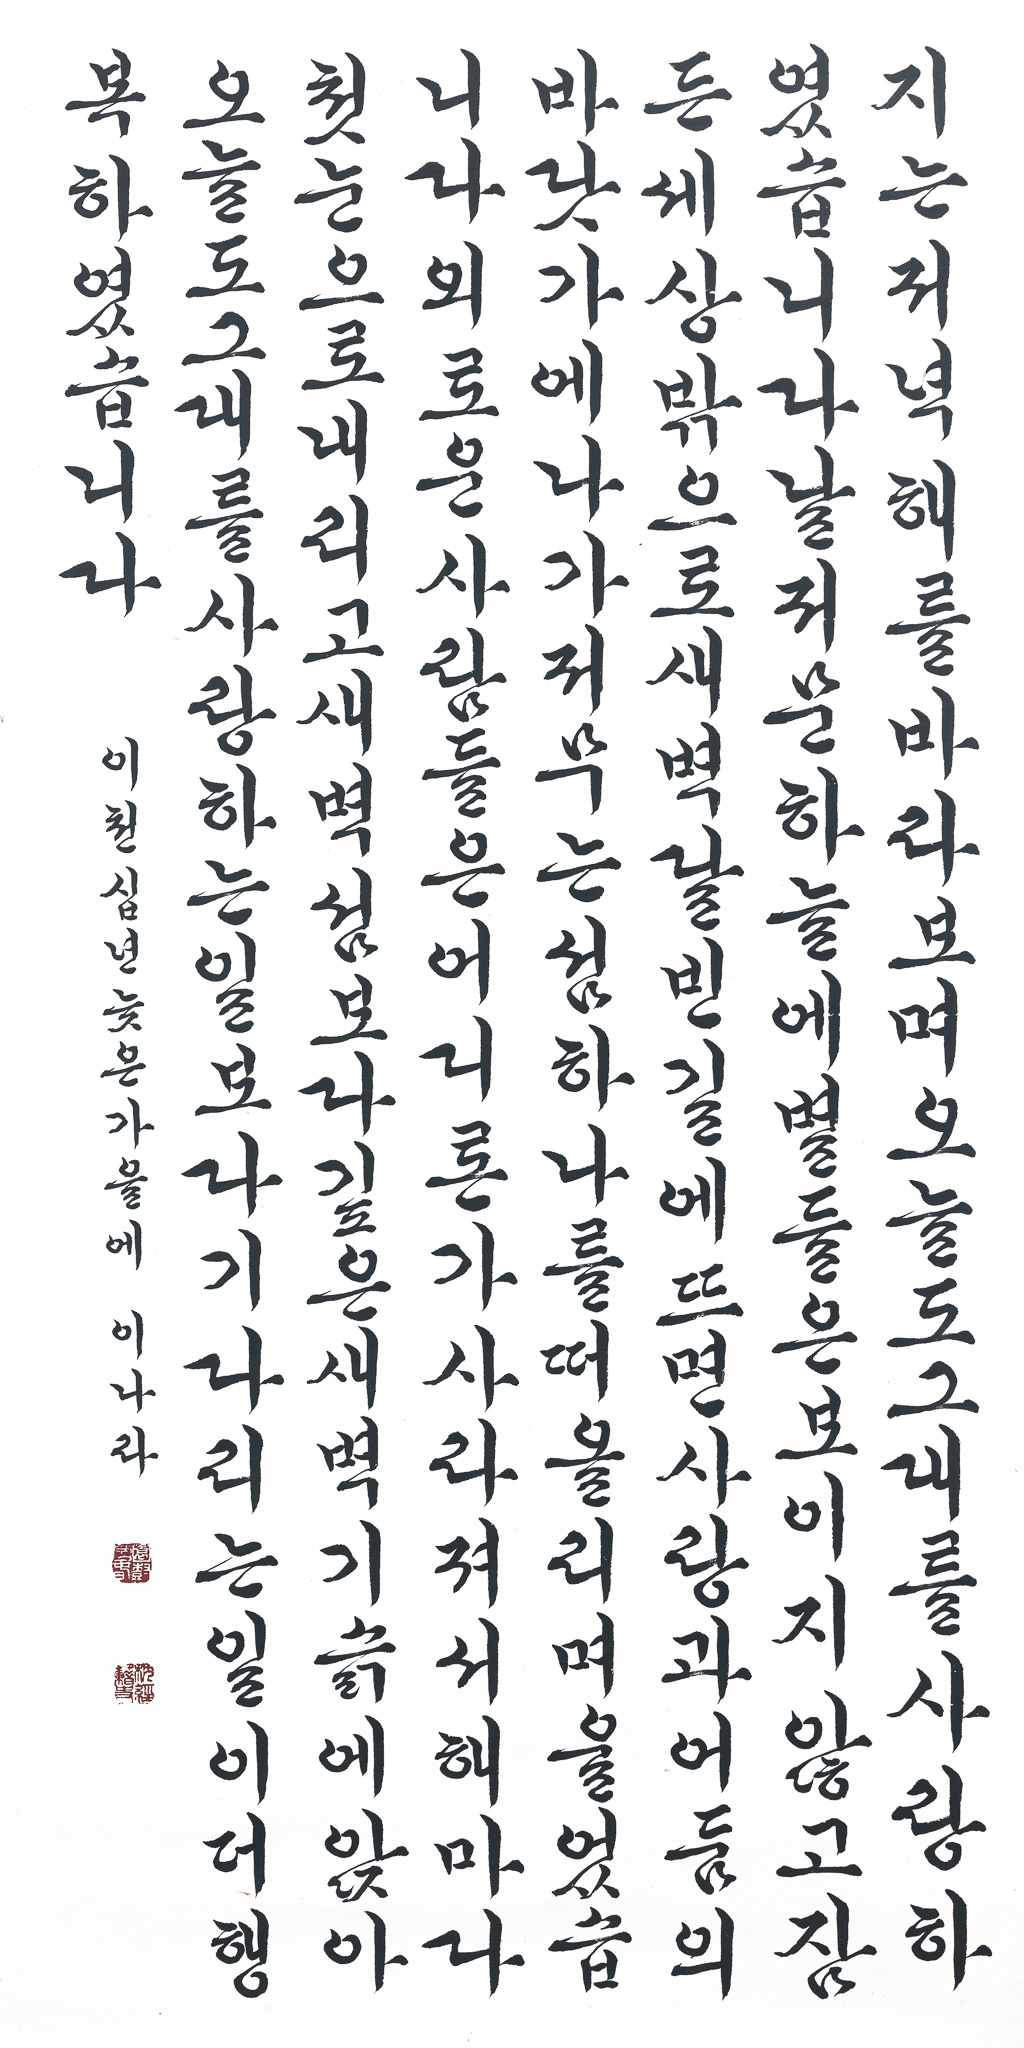 지는저녁해를바라보며오늘도그대를사랑하
였습니다날저문하늘에별들은보이지않고잠
든세상밖으로새벽달빈길에뜨면사랑과어둠의
바닷가에나가저무는섬하나를떠올리며울었습
니다외로운사람들은어디론가사라져서해마다
첫눈으로내리고새벽섬보다깊은새벽기슭에앉아
오늘도그대를사랑하는일보다기다리는일이더행
복하였습니다
이천십년늦은가을에 이나라